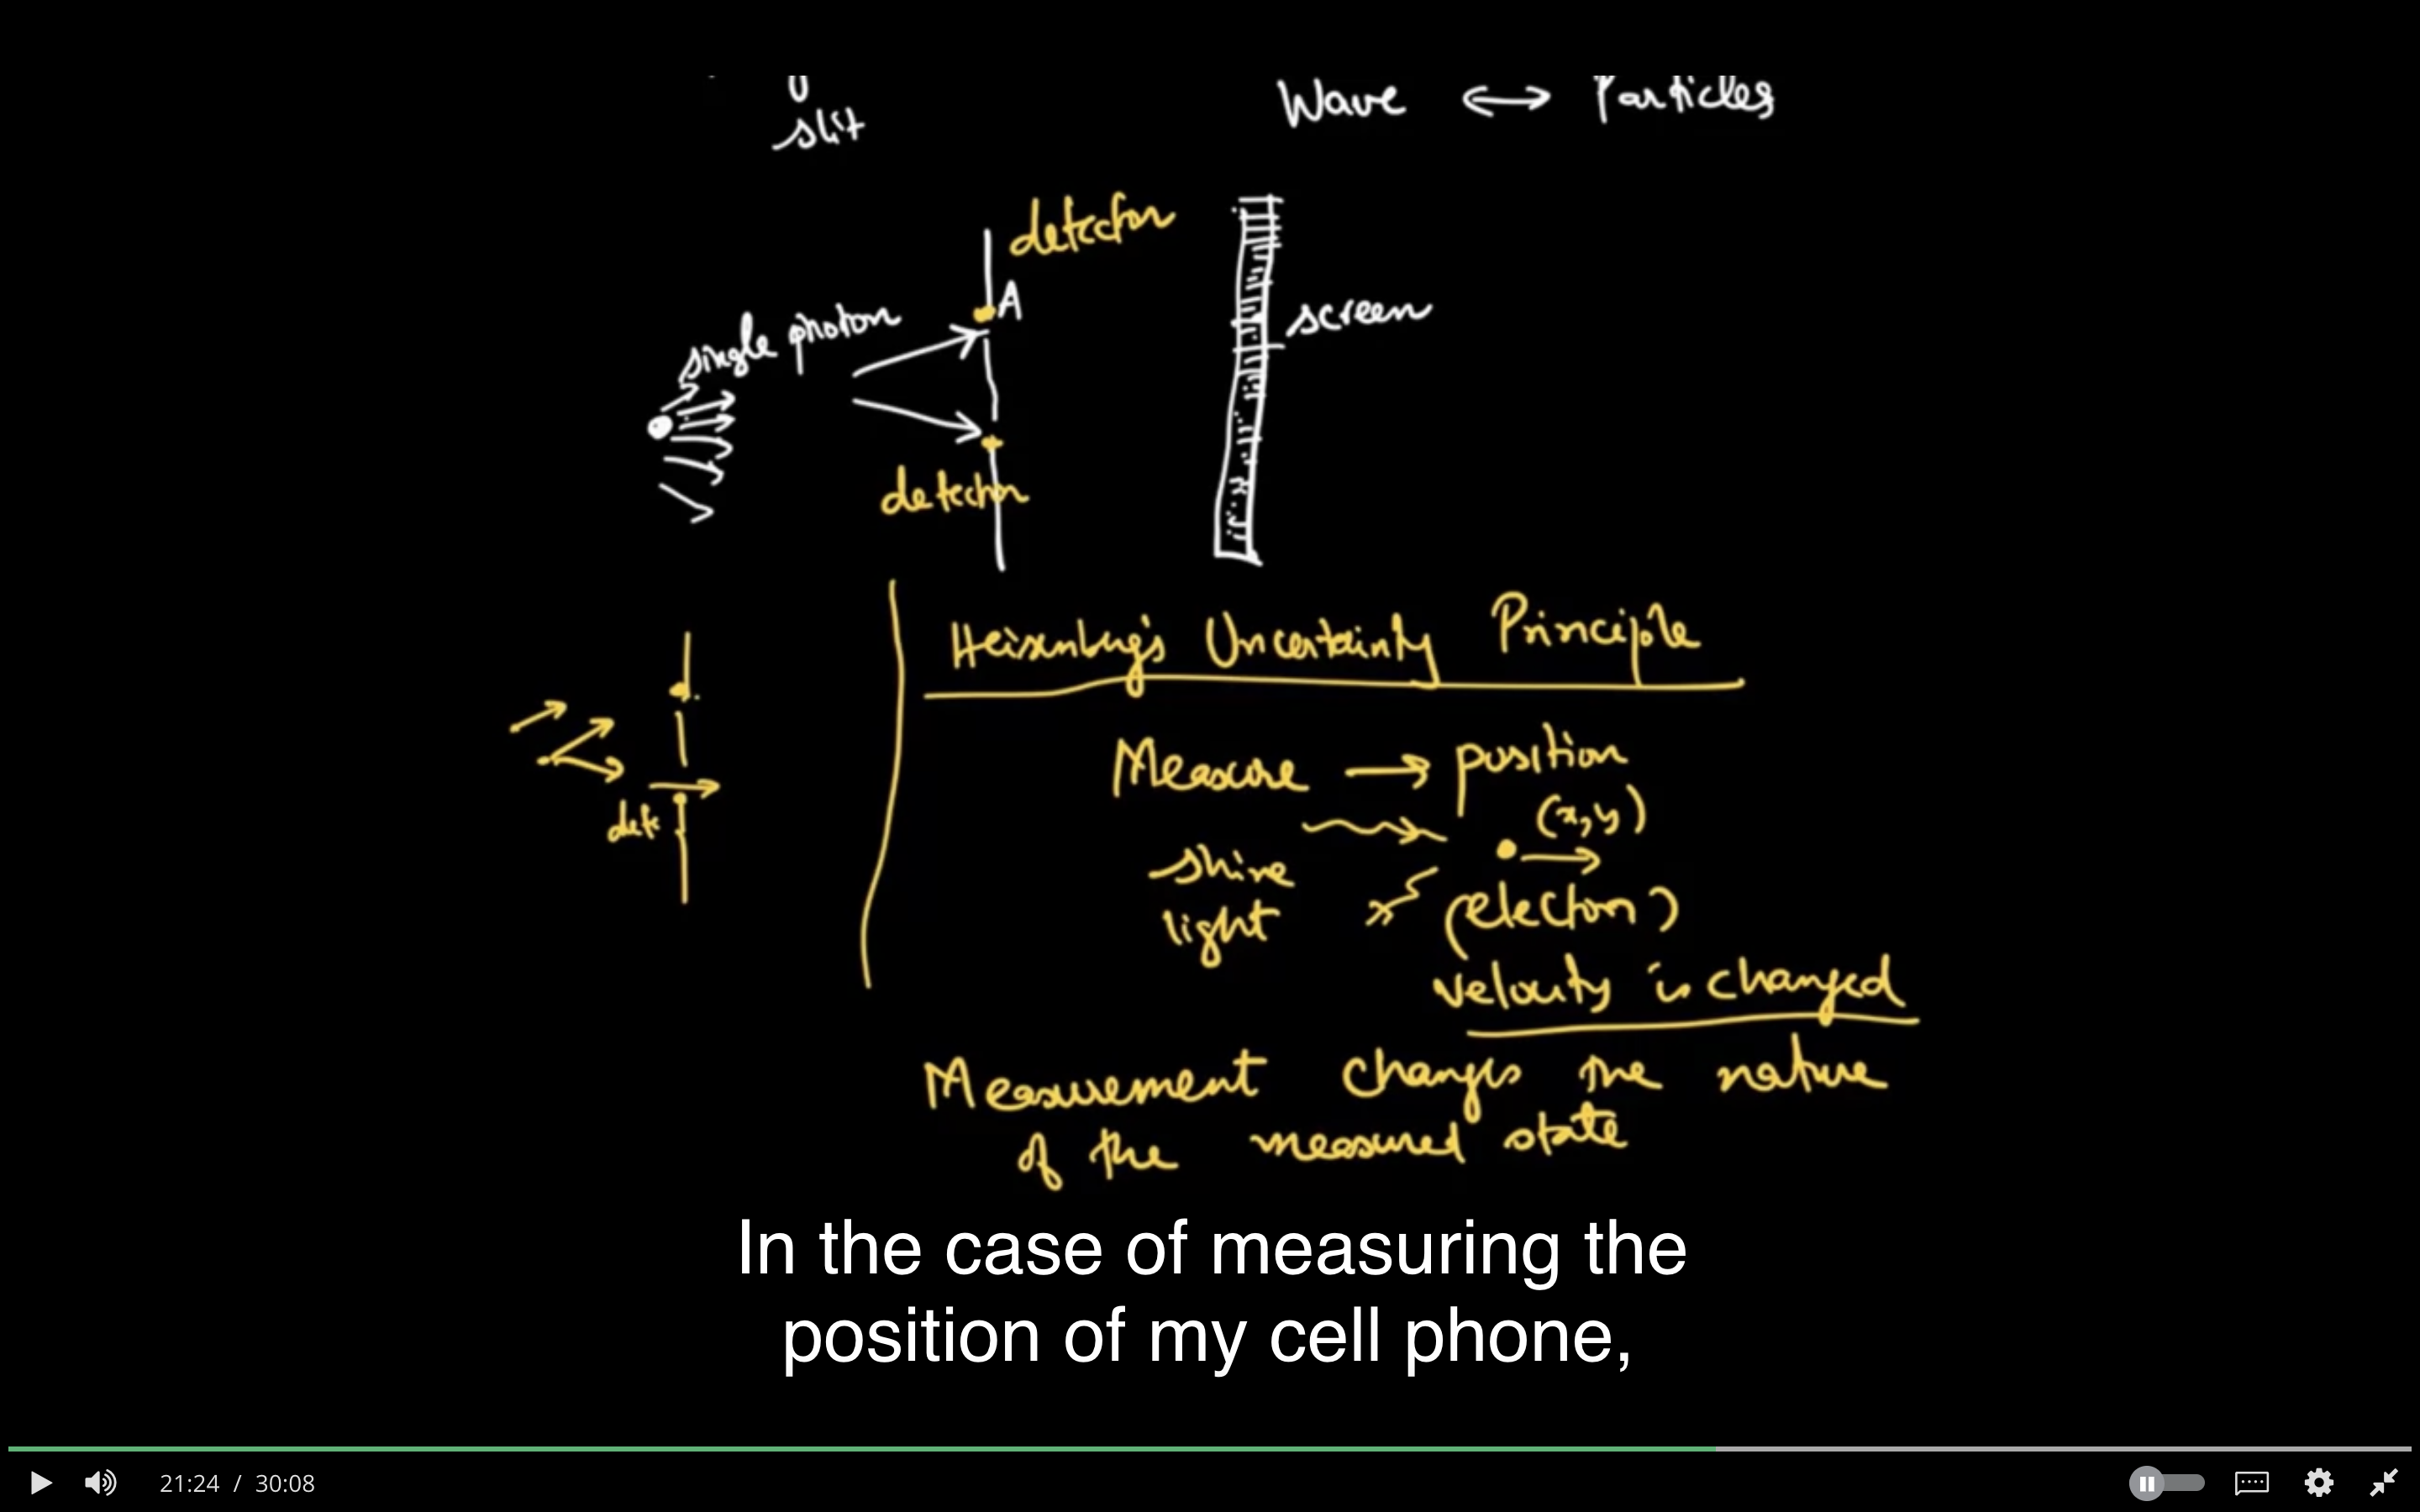 slit
Wave ⟷ Particles
detector
A
single photon
screen
detector
Heisenberg's Uncertainty Principle
Measure → position
(x,y)
shine
light
(electron)
dete
velocity is changed
Measurement changes the nature
of the measured state
In the case of measuring the
position of my cell phone,
21:24 / 30:08